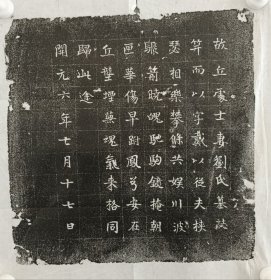 故丘處士妻劉氏墓誌
笄而以字戴以從夫扶
瑟相樂攀條共娱川波
驟箭晚魄馳駒鏡掩朝
匣華傷早跗鳳兮安在
丘壟增無魂氣来格同
歸此逢
開元六年七月十七日